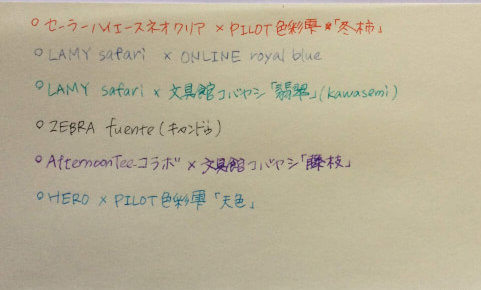 ○ セーラーハイエースネオクリア × PILOT色彩雫「冬柿」
○ LAMY safari × ONLINE royal blue
○ LAMY safari × 文具館コバヤシ「翡翠」(kawasemi)
○ ZEBRA fuente (キャンドゥ)
○ AfternoonTeaコラボ × 文具館コバヤシ「藤枝」
○ HERO × PILOT色彩雫「天色」